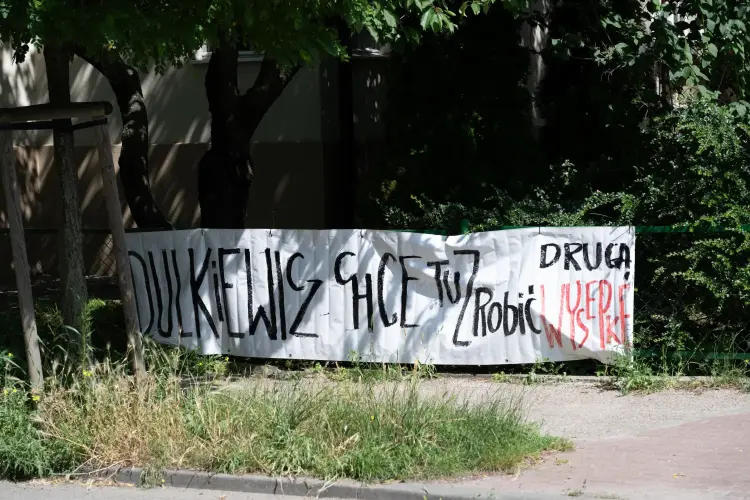 DULKiEWiCZ CHCE TU ZROBIĆ DRUGĄ
WYSEPKĘ